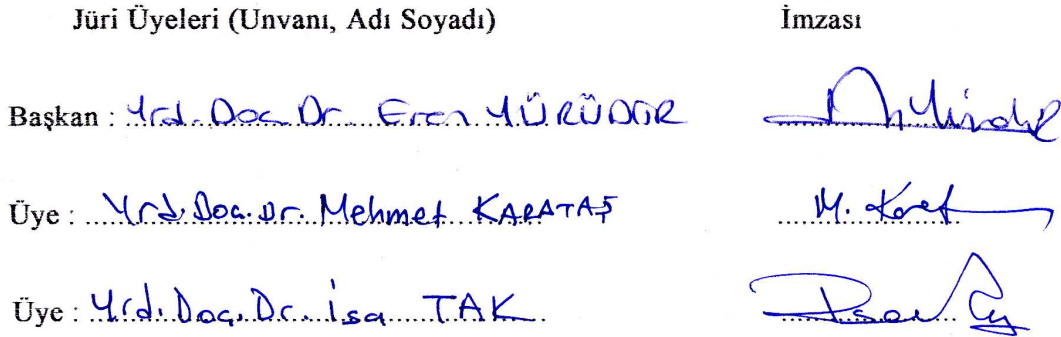 Jüri Üyeleri (Unvanı, Adı Soyadı) İmzası
Başkan : Yrd. Doç. Dr. Eren YÜRÜDÜR
Üye : Yrd. Doç. Dr. Mehmet KARATAŞ M. Karat
Üye : Yrd. Doç. Dr. İsa TAK